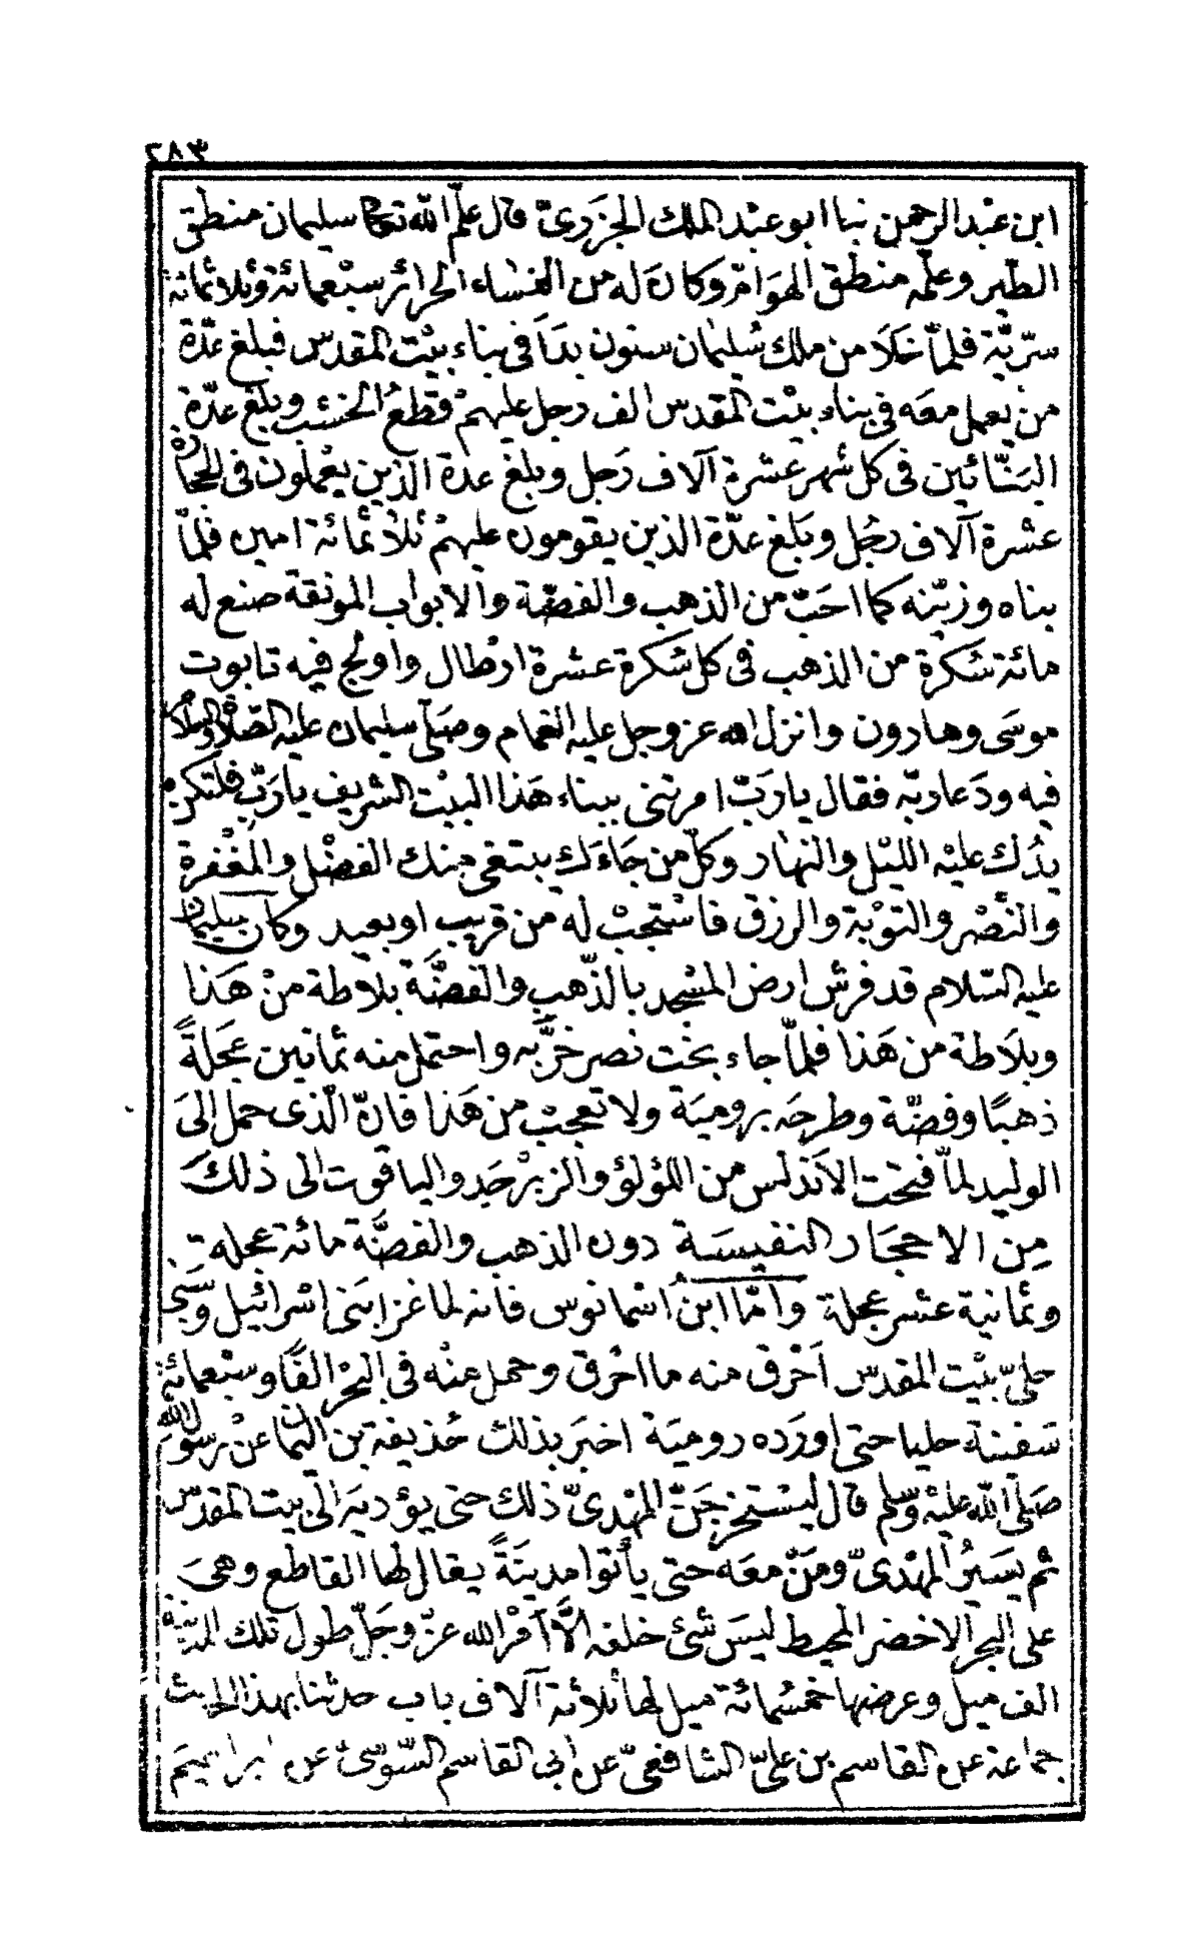 ٢٨٣
ابن عبد الرحمن نبا ابو عبد الملك الجزرىّ قال علّم الله تعالى سليمان منطق
الطّير وعلّمه منطق الهوامّ وكان له من النساء الحرائر سبعمائة وثلاثمائة
سرّيّة فلمّا خلا من ملك سُليمان سنون بدَا فى بناء بيْت المقدس فبلغ عدّة
من يعمل معه فى بناء بيْت المقدس الف رجل عليهمْ قطعُ الخشب وبلغ عدّة
البنّائين فى كل شهر عشرة آلاف رَجل وبلغ عدة الذين يعْملون فى الحجارة
عشرة آلاف رجُل وبَلغ عدّة الذين يقومون عليهمْ ثلاثمائة امين فلمّا
بناه وزيّنه كما احَبّ من الذهب والفضّة والابواب المونقة صنع له
مائة شكرة من الذهب فى كل شكرة عشرة ارطال واولج فيه تابوت
موسَى وهارون وانزل الله عز وجل عليه الغمام وصلّى سليمان عليه الصّلاة والسّلام
فيه ودَعا ربّه فقال يا رَبّ امرتنى ببناء هَذا البيْت الشريف يا ربّ فلتكن
يدُك عليْه الليْل والنهار وكلّ من جَاءَك يبتغى منك الفضْل والمغْفرة
والنّصْر والتوْبة والرزق فاسْتجبْ له من قريب او بعيد وكان سليمان
عليه السّلام قد فرش ارض المسْجد بالذّهب والفضّة بلاطة منْ هَذا
وبلَاطة من هَذا فلمّا جاء بخت نصر خرّبه واحتمل منه ثمانين عَجلةً
ذهبًا وفضّة وطرحَه برومية ولا تعجبْ من هَذا فانّ الّذى حمل الىَ
الوليد لمّا فتحت الاندلس من اللؤلؤ والزبرْجَد والياقوت الى ذلكَ
مِن الاحجَار النفيسَة دون الذهب والفضّة مائة عجلة
وثمانية عشر عجلة وامّا ابنُ اسْمانوس فانه لما غزا بَنى اسْرائيل وسَبى
حلىّ بيْت المقدس اَحْرق منه ما احْرق وحمل منْه فى البحْر الفًا وسبْعمائة
سَفينة حليا حتى اورَده روميَة اخبَر بذلك حُذيفة بن اليَمان عنْ رسول الله
صَلّى الله عليْه وسلم قال ليسْتخرجَنّ المهْدىّ ذلك حتى يؤديَه الى بيت المقدس
ثم يَسيرُ المهْدىّ ومَنْ معَه حتى يأتوا مدينَةً يقال لها القاطع وهىَ
على البحر الاخضر المحيط ليسَ شئ خلفه الاَّ آمْر الله عزّ وجَلّ طول تلك المدينة
الف ميل وعرضها خمسْمائة ميل لها ثلاثة آلاف باب حدثنا بهذا الحديث
جماعة عن القاسم بن علىّ الشافعىّ عن ابى القاسم السّوسىّ عن ابراهيمَ